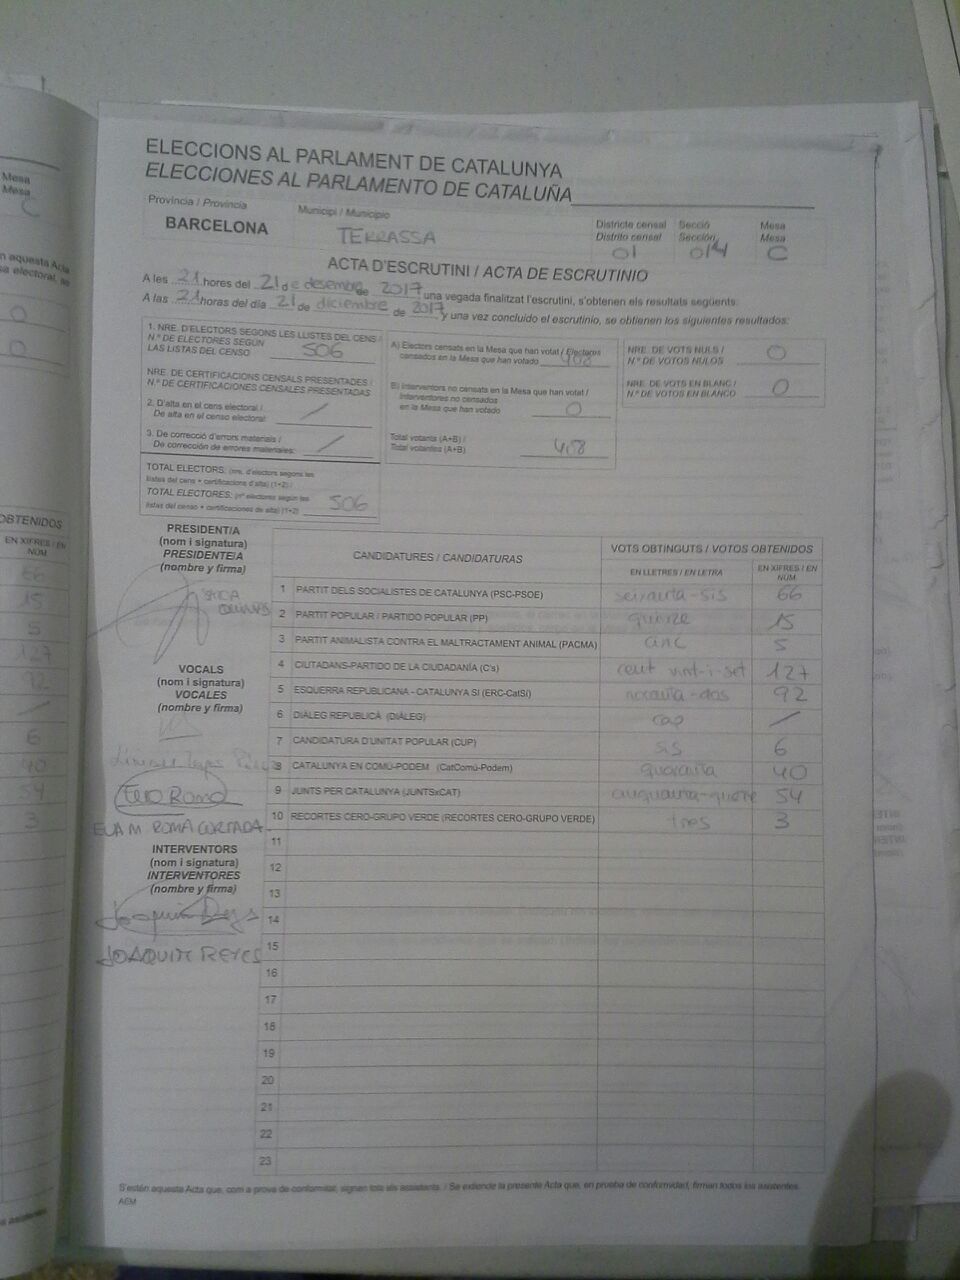 Mesa
Mesa
C
0
0
OBTENIDOS
EN XIFRES / EN
NÚM
66
15
5
127
92
6
40
54
3
ELECCIONS AL PARLAMENT DE CATALUNYA
ELECCIONES AL PARLAMENTO DE CATALUÑA
Província / Provincia
Municipi / Municipio
Districte censal Secció Mesa
Distrito censal Sección Mesa
BARCELONA TERRASSA 01 014 C
ACTA D'ESCRUTINI / ACTA DE ESCRUTINIO
A les 21 hores del 21 de desembre de 2017, una vegada finalitzat l'escrutini, s'obtenen els resultats següents:
A las 21 horas del día 21 de diciembre de 2017 y una vez concluido el escrutinio, se obtienen los siguientes resultados:
1. NRE. D'ELECTORS SEGONS LES LLISTES DEL CENS /
N.º DE ELECTORES SEGÚN
LAS LISTAS DEL CENSO 506
NRE. DE CERTIFICACIONS CENSALS PRESENTADES /
N.º DE CERTIFICACIONES CENSALES PRESENTADAS
2. D'alta en el cens electoral /
De alta en el censo electoral:
3. De correcció d'errors materials /
De corrección de errores materiales:
TOTAL ELECTORS: (nre. d'electors segons les
llistes del cens + certificacions d'alta) (1+2) /
TOTAL ELECTORES: (nº electores según las
listas del censo + certificaciones de alta) (1+2) 506
A) Electors censats en la Mesa que han votat / Electores
censados en la Mesa que han votado 408
B) Interventors no censats en la Mesa que han votat /
Interventores no censados
en la Mesa que han votado 0
Total votants (A+B) /
Total votantes (A+B) 408
NRE. DE VOTS NULS /
N.º DE VOTOS NULOS 0
NRE. DE VOTS EN BLANC /
N.º DE VOTOS EN BLANCO 0
PRESIDENT/A
(nom i signatura)
PRESIDENTE/A
(nombre y firma)
VOCALS
(nom i signatura)
VOCALES
(nombre y firma)
EVA M. ROMA CORTADA
INTERVENTORS
(nom i signatura)
INTERVENTORES
(nombre y firma)
Joaquim Reyes
JOAQUIM REYES
CANDIDATURES / CANDIDATURAS VOTS OBTINGUTS / VOTOS OBTENIDOS
EN LLETRES / EN LETRA EN XIFRES / EN NÚM
1 PARTIT DELS SOCIALISTES DE CATALUNYA (PSC-PSOE) seixanta-sis 66
2 PARTIT POPULAR / PARTIDO POPULAR (PP) quinze 15
3 PARTIT ANIMALISTA CONTRA EL MALTRACTAMENT ANIMAL (PACMA) cinc 5
4 CIUTADANS-PARTIDO DE LA CIUDADANÍA (C's) cent vint-i-set 127
5 ESQUERRA REPUBLICANA - CATALUNYA SÍ (ERC-CatSí) noranta-dos 92
6 DIÀLEG REPUBLICÀ (DIÀLEG) cap
7 CANDIDATURA D'UNITAT POPULAR (CUP) sis 6
8 CATALUNYA EN COMÚ-PODEM (CatComú-Podem) quaranta 40
9 JUNTS PER CATALUNYA (JUNTSxCAT) cinquanta-quatre 54
10 RECORTES CERO-GRUPO VERDE (RECORTES CERO-GRUPO VERDE) tres 3
11
12
13
14
15
16
17
18
19
20
21
22
23
S'estén aquesta Acta que, com a prova de conformitat, signen tots els assistents. / Se extiende la presente Acta que, en prueba de conformidad, firman todos los asistentes.
AEM